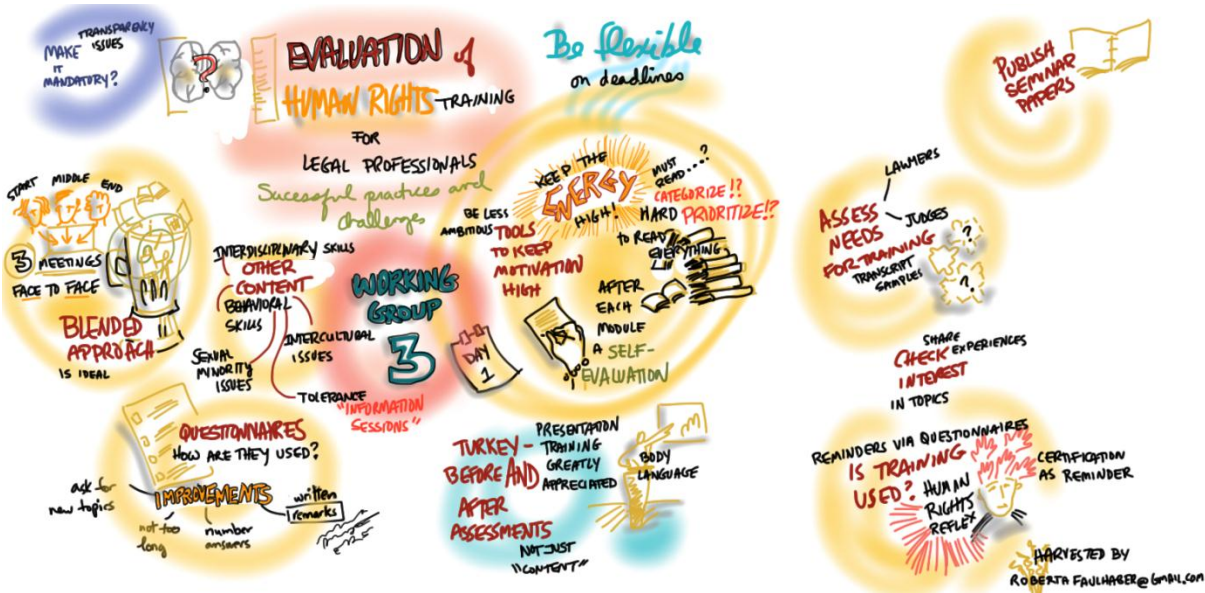 TRANSPARENCY
ISSUES
MAKE
IT
MANDATORY?
?
EVALUATION of
HUMAN RIGHTS TRAINING
FOR
LEGAL PROFESSIONALS
Sucessful practices and
challenges
Be flexible
on deadlines
PUBLISH
SEMINAR
PAPERS
START MIDDLE END
3 MEETINGS
FACE TO FACE
BLENDED
APPROACH
IS IDEAL
INTERDISCIPLINARY SKILLS
OTHER
CONTENT
BEHAVIORAL
SKILLS
SEXUAL
MINORITY
ISSUES
INTERCULTURAL
ISSUES
TOLERANCE
WORKING
GROUP
3
"INFORMATION
SESSIONS"
DAY
1
KEEP THE
ENERGY
HIGH!
BE LESS
AMBITIOUS
TOOLS
TO KEEP
MOTIVATION
HIGH
MUST
READ...?
CATEGORIZE!?
HARD PRIORITIZE!?
TO READ
EVERYTHING
AFTER
EACH
MODULE
A SELF-
EVALUATION
LAWYERS
JUDGES
ASSESS
NEEDS
FOR TRAINING
TRANSCRIPT
SAMPLES
?
?
SHARE
EXPERIENCES
CHECK
INTEREST
IN TOPICS
QUESTIONNAIRES
HOW ARE THEY USED?
IMPROVEMENTS
ask for
new topics
not too
long
number
answers
written
remarks
TURKEY -
BEFORE AND
AFTER
ASSESSMENTS
PRESENTATION
TRAINING
GREATLY
APPRECIATED
NOT JUST
"CONTENT"
BODY
LANGUAGE
REMINDERS VIA QUESTIONNAIRES
IS TRAINING
USED?
HUMAN
RIGHTS
REFLEX
CERTIFICATION
AS REMINDER
HARVESTED BY
ROBERTA FAULHABER@GMAIL.COM